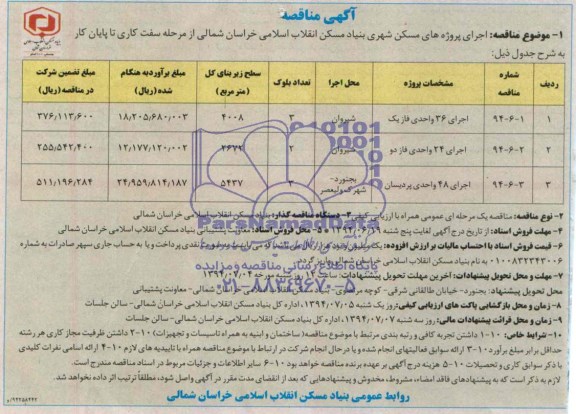 آگهی مناقصه
۱- موضوع مناقصه: اجرای پروژه های مسکن شهری بنیاد مسکن انقلاب اسلامی خراسان شمالی از مرحله سفت کاری تا پایان کار
به شرح جدول ذیل:
ردیف شماره مناقصه مشخصات پروژه محل اجرا تعداد بلوک سطح زیر بنای کل (متر مربع) مبلغ برآوردیه هنگام شده (ریال) مبلغ تضمین شرکت در مناقصه (ریال)
۱ ۹۴-۶-۱ اجرای ۳۶ واحدی فاز یک شیروان ۳ ۴۰۰۸ ۱۸,۲۰۵,۶۸۰,۰۰۳ ۳۷۶,۱۱۳,۶۰۰
۲ ۹۴-۶-۲ اجرای ۲۴ واحدی فاز دو شیروان ۲ ۲۶۷۹ ۱۲,۱۷۷,۱۲۰,۰۰۲ ۲۵۵,۵۴۲,۴۰۰
۳ ۹۴-۶-۳ اجرای ۴۸ واحدی پردیسان بجنورد- شهرک ولیعصر ۵۴۳۷ ۲۴,۹۵۹,۸۱۴,۱۸۷ ۵۱۱,۱۹۶,۲۸۴
ParsNamadData
پایگاه اطلاع رسانی مناقصه و مزایده
۰۲۱-۸۸۳۴۹۶۷۰-۵
۲- نوع مناقصه: مناقصه یک مرحله ای عمومی همراه با ارزیابی کیفی ۳- دستگاه مناقصه گذار: بنیاد مسکن انقلاب اسلامی خراسان شمالی
۴- مهلت فروش اسناد: از تاریخ درج آگهی لغایت پنج شنبه ۵- محل فروش اسناد: بنیاد مسکن انقلاب اسلامی خراسان شمالی
۶- قیمت فروش اسناد با احتساب مالیات بر ارزش افزوده: پرداخت و یا به حساب جاری سپهر صادرات به شماره
۰۱۰۰۸۳۲۲۴۳۰۰۶ به نام بنیاد مسکن انقلاب اسلامی خراسان شمالی واریز گردد.
۷- مهلت و محل تحویل پیشنهادات: آخرین مهلت تحویل پیشنهادات: ساعت ۱۴ روز مورخه ۱۳۹۴/۰۷/۰۴
محل تحویل پیشنهاد: بجنورد- خیابان طالقانی شرقی- شمالی- معاونت پشتیبانی
۸- زمان و محل بازگشایی پاکت های ارزیابی کیفی: روز یک شنبه ۱۳۹۴/۰۷/۰۵، اداره کل بنیاد مسکن انقلاب اسلامی خراسان شمالی- سالن جلسات
۹- زمان و محل قرائت پیشنهادات مالی: روز سه شنبه ۱۳۹۴/۰۷/۰۷، اداره کل بنیاد مسکن انقلاب اسلامی خراسان شمالی- سالن جلسات
۱۰- شرایط خاص: ۱-۱۰ داشتن تجربه کافی و رتبه بندی مرتبط با موضوع مناقصه (ساختمان و ابنیه به همراه تاسیسات و تجهیزات) ۲-۱۰ داشتن ظرفیت مجاز کاری هر رشته
حداقل برابر مبلغ برآورد ۳-۱۰ ارائه سوابق فعالیتهای انجام شده و یا درحال انجام شرکت در ارتباط با موضوع مناقصه همراه با تاییدیه های لازم ۴-۱۰ ارائه اسامی نفرات کلیدی
با ذکر سوابق کاری و تحصیلات ۵-۱۰ هزینه درج آگهی بر عهده برنده مناقصه خواهد بود ۶-۱۰ سایر اطلاعات و جزئیات مربوط در اسناد مناقصه مندرج است.
لازم به ذکر است که به پیشنهادهای فاقد امضاء، مشروط، مخدوش و پیشنهادهایی که بعد از انقضای مدت مقرر در آگهی واصل شود، مطلقاً ترتیب اثر داده نخواهد شد.
روابط عمومی بنیاد مسکن انقلاب اسلامی خراسان شمالی